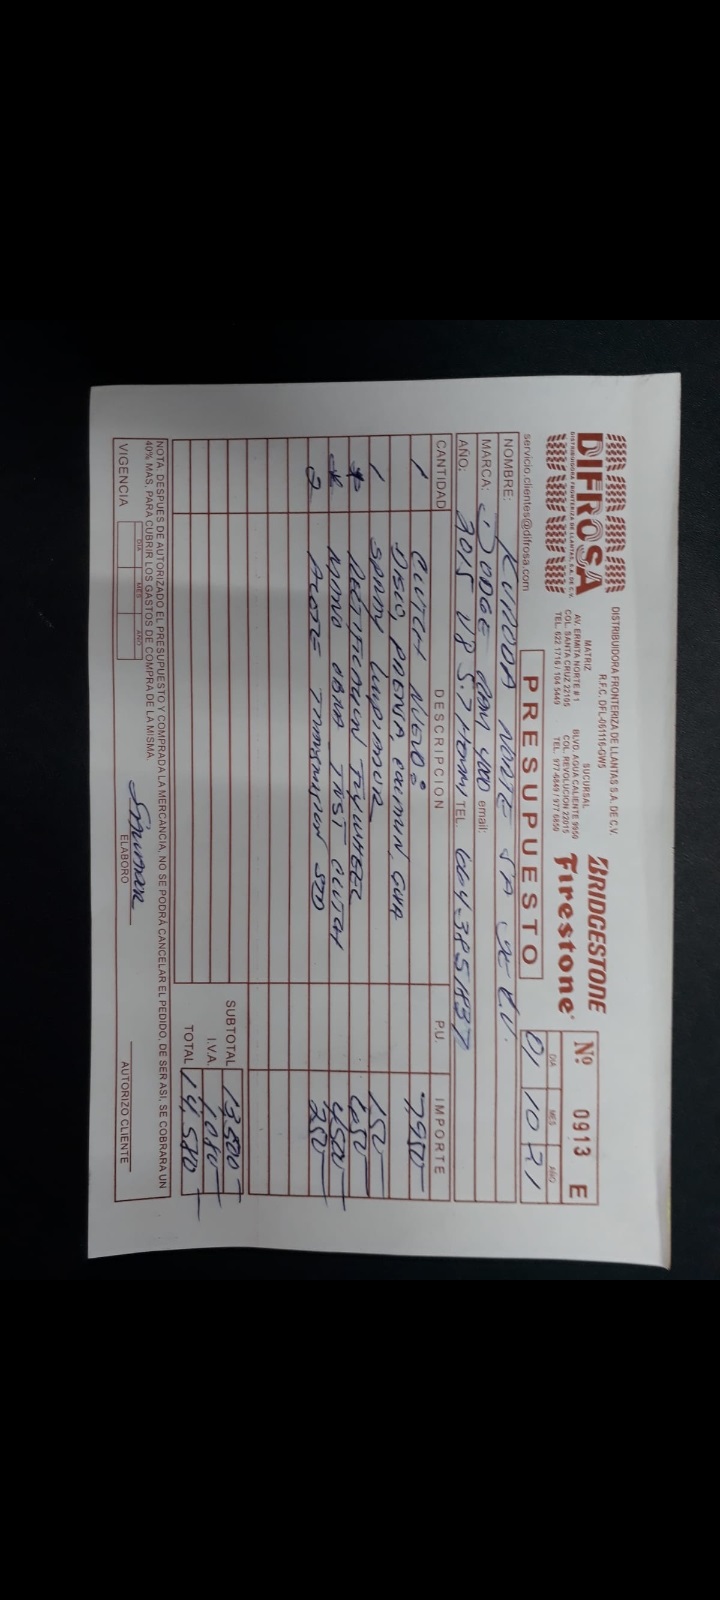 DIFROSA
DISTRIBUIDORA FRONTERIZA DE LLANTAS, S.A. DE C.V.
servicio.clientes@difrosa.com
DISTRIBUIDORA FRONTERIZA DE LLANTAS S.A. DE C.V.
R.F.C. DFL-061116-GW5
MATRIZ
AV. ERMITA NORTE # 1
COL. SANTA CRUZ 22105
TEL. 622 1716 / 104 5449
SUCURSAL
BLVD. AGUA CALIENTE 9950
COL. REVOLUCION 22015
TEL. 977-6849 / 977 6850
BRIDGESTONE
Firestone
PRESUPUESTO
Nº 0913 E
DIA MES AÑO
01 10 21
NOMBRE: KURODA NORTE SA DE C.V.
MARCA: DODGE RAM 4000 email:
AÑO: 2015 V8 5.7 HEMI TEL. 664-3851837
CANTIDAD DESCRIPCION P.U. IMPORTE
1 CLUTCH NUEVO: 7,950
DISCO, PRENSA, COLLARIN, GUIA
1 SPRAY LIMPIADOR 150
* RECTIFICADO FLYWHEEL 650
* MANO OBRA INST CLUTCH 4500
2 ACEITE TRANSMISION STD 250
SUBTOTAL 13,500
I.V.A. 1,080
TOTAL 14,580
NOTA. DESPUES DE AUTORIZADO EL PRESUPUESTO Y COMPRADA LA MERCANCIA, NO SE PODRÁ CANCELAR EL PEDIDO, DE SER ASI, SE COBRARA UN
40% MAS, PARA CUBRIR LOS GASTOS DE COMPRA DE LA MISMA.
VIGENCIA
DIA MES AÑO
ELABORO
AUTORIZO CLIENTE